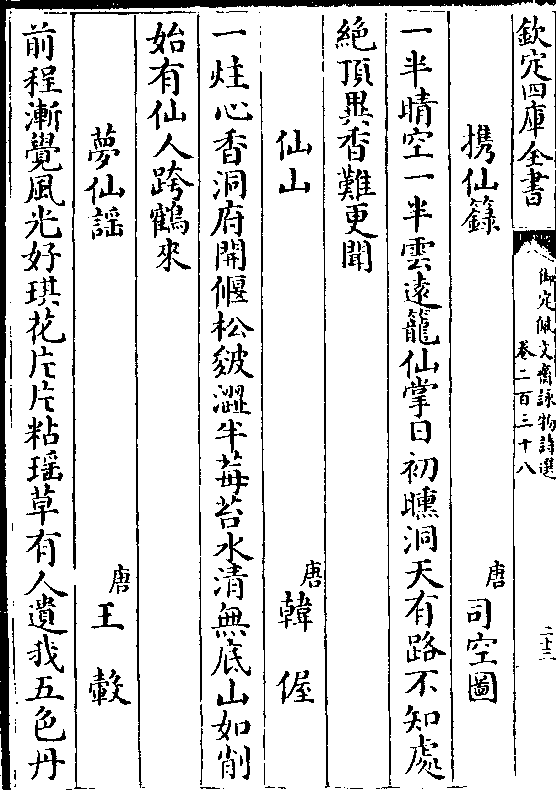 欽定四庫全書
御定佩文齋詠物詩選
卷二百三十八
二十三
携仙籙 唐 司空圖
一半晴空一半雲遠籠仙掌日初曛洞天有路不知處
絶頂異香難更聞
仙山 唐 韓偓
一炷心香洞府開偃松皴澀半莓苔水清無底山如削
始有仙人跨鶴來
夢仙謡 唐 王轂
前程漸覺風光好琪花片片粘瑶草有人遺我五色丹